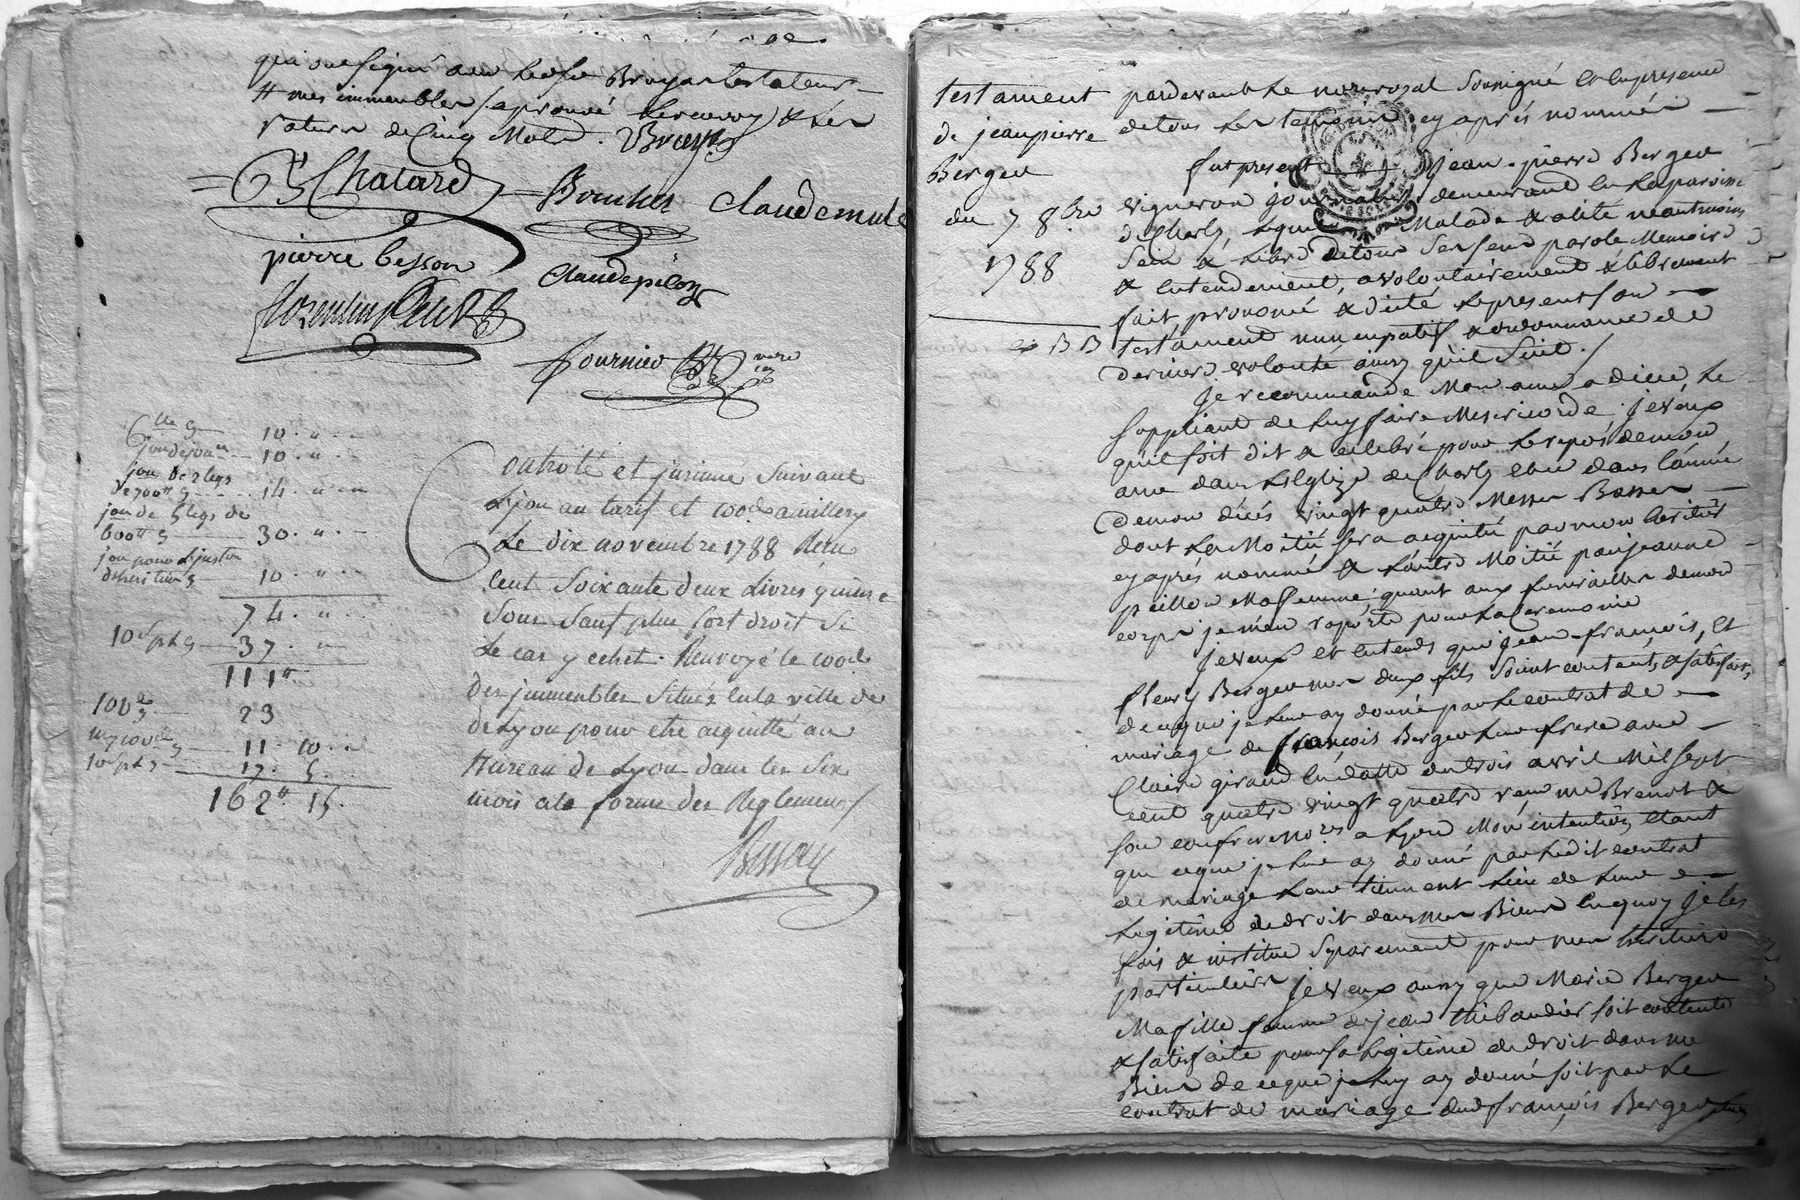 qui ont signé avec led. sr Bruyas testateur
# mes immeubles / aprouvé le renvoy & les
ratures de cinq mots. Bruyas
Chatard
Boucher
Claude mule
pierre besson
Claude pilon
florentin Petit
fournier
10
10
jou de 2 legs
de 700# 14
jou de 5 legs de
600# 30
10
74
10s p# 37
111#
23
11 10
10s p# 17 5
162# 15
Controlé et insinué suivant
à Lyon au tarif et 100e d a millery
Le dix novembre 1788 Reçu
Cent soixante deux Livres quinze
Sous Sauf plus fort droit Si
Le cas y echet. Renvoyé le 100e d
des immeubles situés en la ville de
de Lyon pour etre acquitté au
Bureau de Lyon dans les Six
mois a la forme des Reglements
Besson
testament
de jean pierre
Bergeu
du 7 8bre
1788
pardevant Le no.re royal Soussigné et en presence
de tous les temoins cy aprés nommés
fut present jean-pierre Bergeu
vigneron demeurant en La paroisse
de Charly, Lequel Malade & alité neantmoins
Sain & Libre de tous Ses Sens parole Memoire
& entendement, a volontairement & librement
fait prononcé & dicté Le present Son
testament nuncupatif & ordonnance de
derniere volonté ainsy qu'il Suit. /
Je recommande Mon ame a dieu, Le
Suppliant de Luy faire Misericorde ; je veux
qu'il soit dit & celebré pour Le repos de mon
ame dans L'Eglize de Charly et ce dans L'année
de mon décés vingt quatre Messes Basses
dont La Moitié sera acquitté par mon heritier
cy aprés nommé & L'autre Moitié par jeanne
peillon Ma femme : quant aux funerailles de mon
corps je m'en raporte pour La ceremonie
Je veux et entends que jean-françois, et
fleury Bergeu mes deux fils Soient contents & satisfaits
de ce que je Leur ay donné par Le contrat de
mariage de françois Bergeu Leur frere avec
Claire giraud en datte du trois avril Mil Sept
cent quatre vingt quatre recu me Brenot &
Son confrere no.res a Lyon Mon intention etant
que ce que je Leur ay donné par Ledit contrat
de mariage Leur tiennent Lieu de Leur
Legitime de droit dans mes Biens en quoy je les
fais & institue Separement pour mes heritiers
particuliers je veux aussy que Marie Bergeu
Ma fille femme de jean thibaudier soit contente
& satisfaite pour sa Legitime de droit dans mes
Biens de ce que je Luy ay donné soit par Le
contrat de mariage dud. françois Bergeu